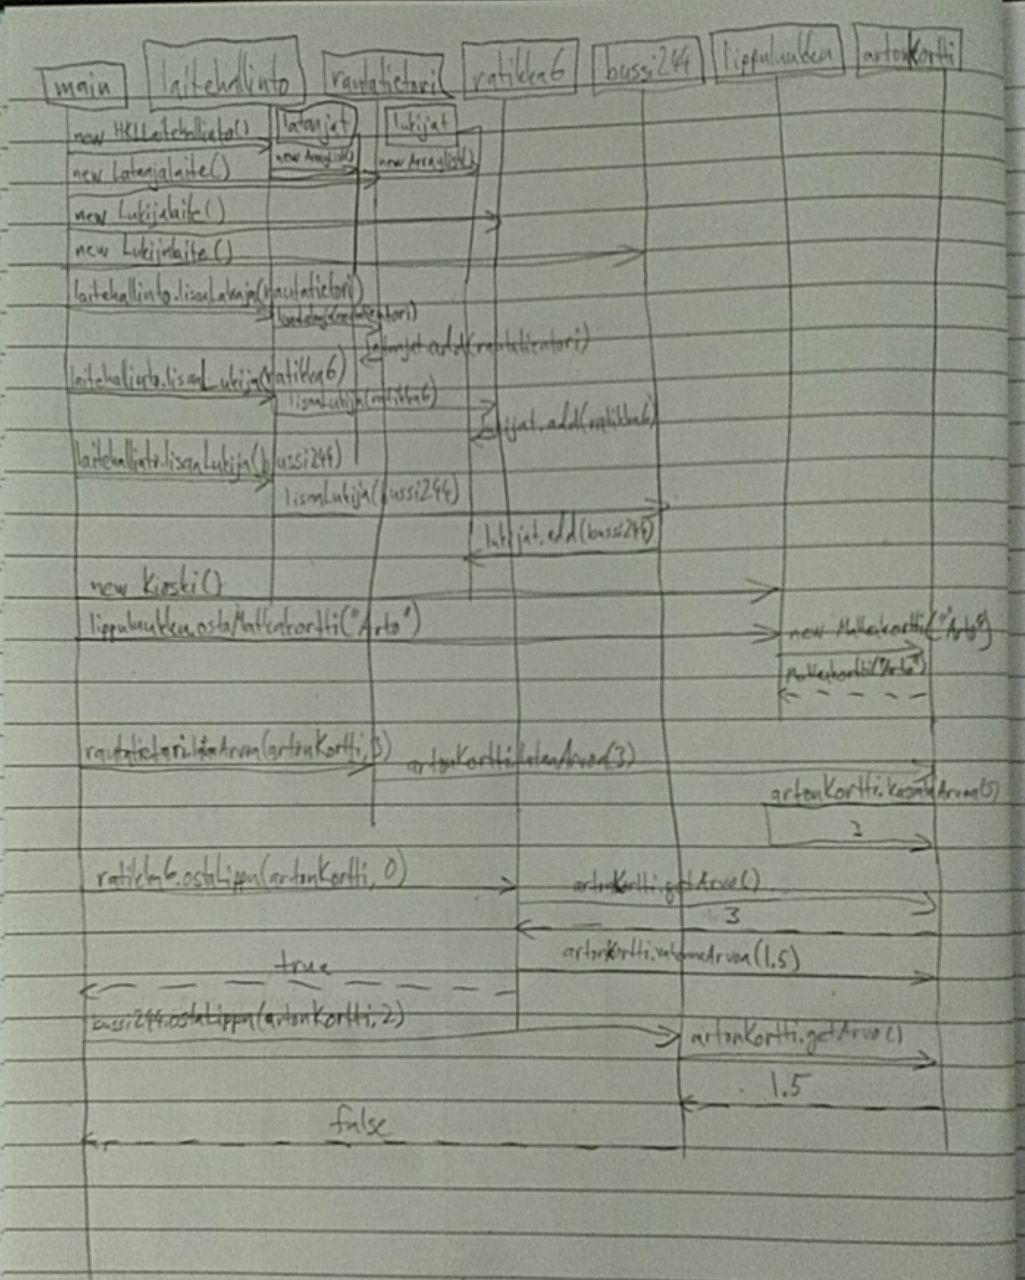 main laitehallinto rautatietori ratikka6 bussi244 lippuluukku artonKortti
lataajat lukijat
new HKLLaitehallinto()
new Arraylist() new Arraylist()
new Lataajalaite()
new Lukijalaite()
new Lukijalaite()
laitehallinto.lisaaLataaja(rautatietori)
lataajat.add(rautatientori)
laitehallinto.lisaaLukija(ratikka6)
lisaaLukija(ratikka6)
lukijat.add(ratikka6)
laitehallinto.lisaaLukija(bussi244)
lisaaLukija(bussi244)
lukijat.add(bussi244)
new Kioski()
lippuluukku.ostaMatkakortti("Arto")
new Matkakortti("Arto")
Matkakortti("Arto")
rautatietori.lataaArvoa(artonKortti, 3)
artonKortti.lataaArvoa(3)
artonKortti.kasvataArvoa(3)
3
ratikka6.ostaLippu(artonKortti, 0)
artonKortti.getArvo()
3
artonKortti.vahennaArvoa(1.5)
true
bussi244.ostaLippu(artonKortti, 2)
artonKortti.getArvo()
1.5
false